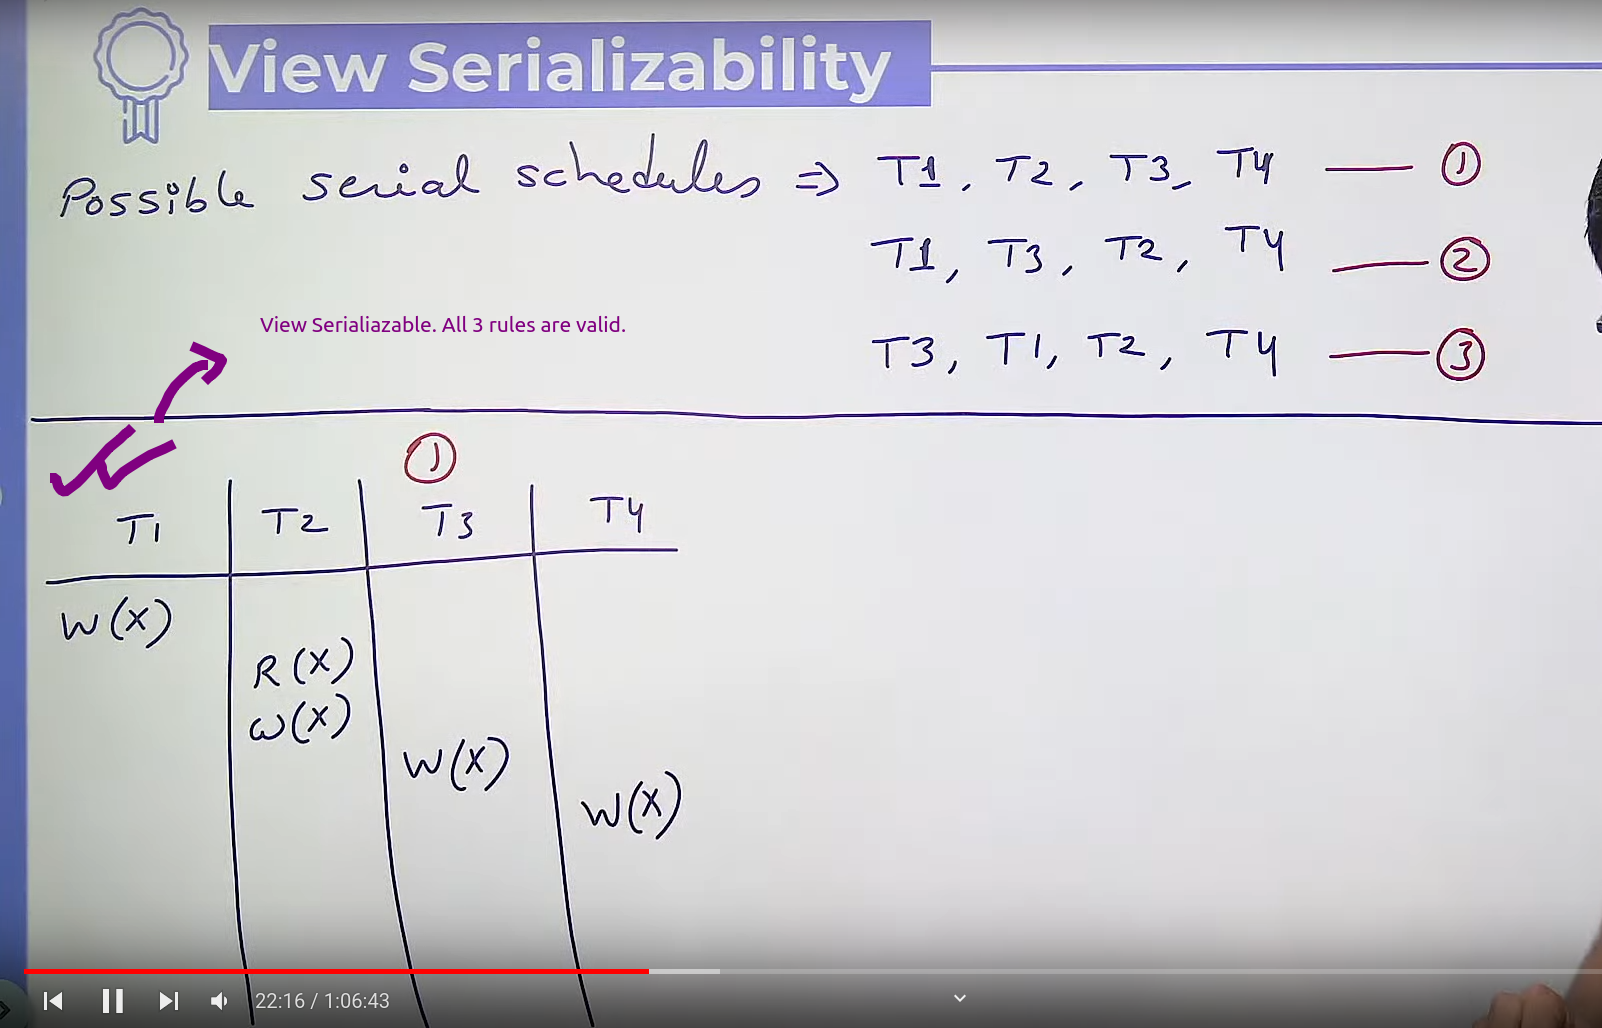 View Serializability
Possible serial schedules => T1, T2, T3, T4 — ①
T1, T3, T2, T4 — ②
T3, T1, T2, T4 — ③
View Serialiazable. All 3 rules are valid.
①
T1 T2 T3 T4
W(X)
R(X)
W(X)
W(X)
W(X)
22:16 / 1:06:43